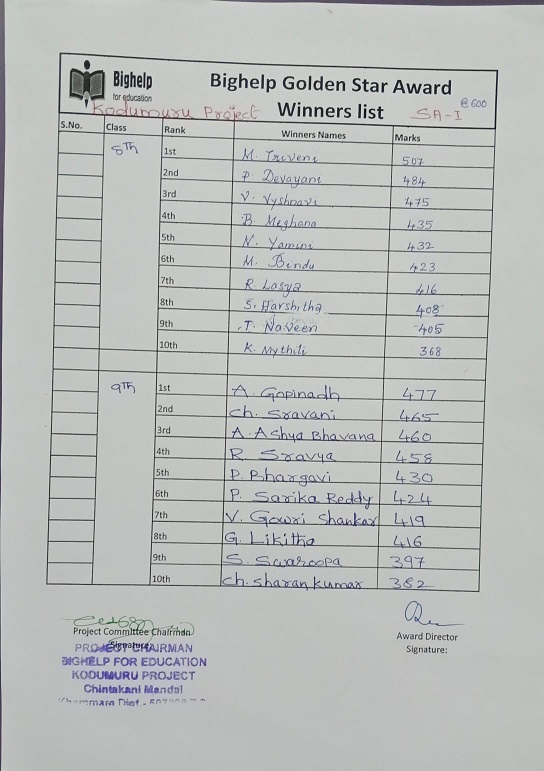 Bighelp
for education
Bighelp Golden Star Award
Kodumuru Project
Winners list
SA-I
@ 600
S.No. Class Rank Winners Names Marks
8Th 1st M. Triveni 507
2nd P. Devayani 484
3rd V. Vyshnavi 475
4th B. Meghana 435
5th N. Yamini 432
6th M. Bindu 423
7th R. Lasya 416
8th S. Harshitha 408
9th T. Naveen 405
10th K. Mythili 368
9Th 1st A. Gopinadh 477
2nd Ch. Sravani 465
3rd A. Ashya Bhavana 460
4th R. Sravya 458
5th P. Bhargavi 430
6th P. Sarika Reddy 424
7th V. Gowri Shankar 419
8th G. Likitha 416
9th S. Swaroopa 397
10th Ch. Sharan kumar 382
Project Committee Chairman
Signature:
Award Director
Signature:
PROJECT CHAIRMAN
BIGHELP FOR EDUCATION
KODUMURU PROJECT
Chintakani Mandal
Khammam Dist -